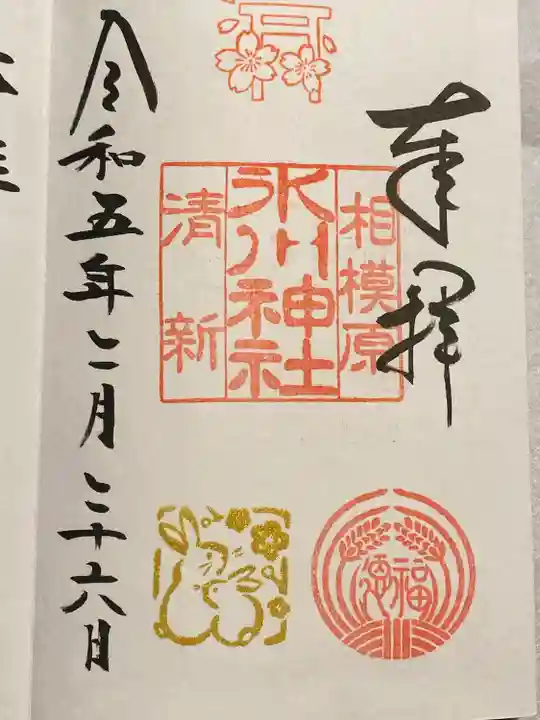 奉拝
相模原
氷川神社
清新
福徳
令和五年二月二十六日